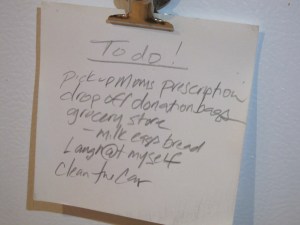 To do!
Pick up Moms prescription
drop off donation bags
grocery store
- milk eggs bread
Laugh @ myself
Clean the Car